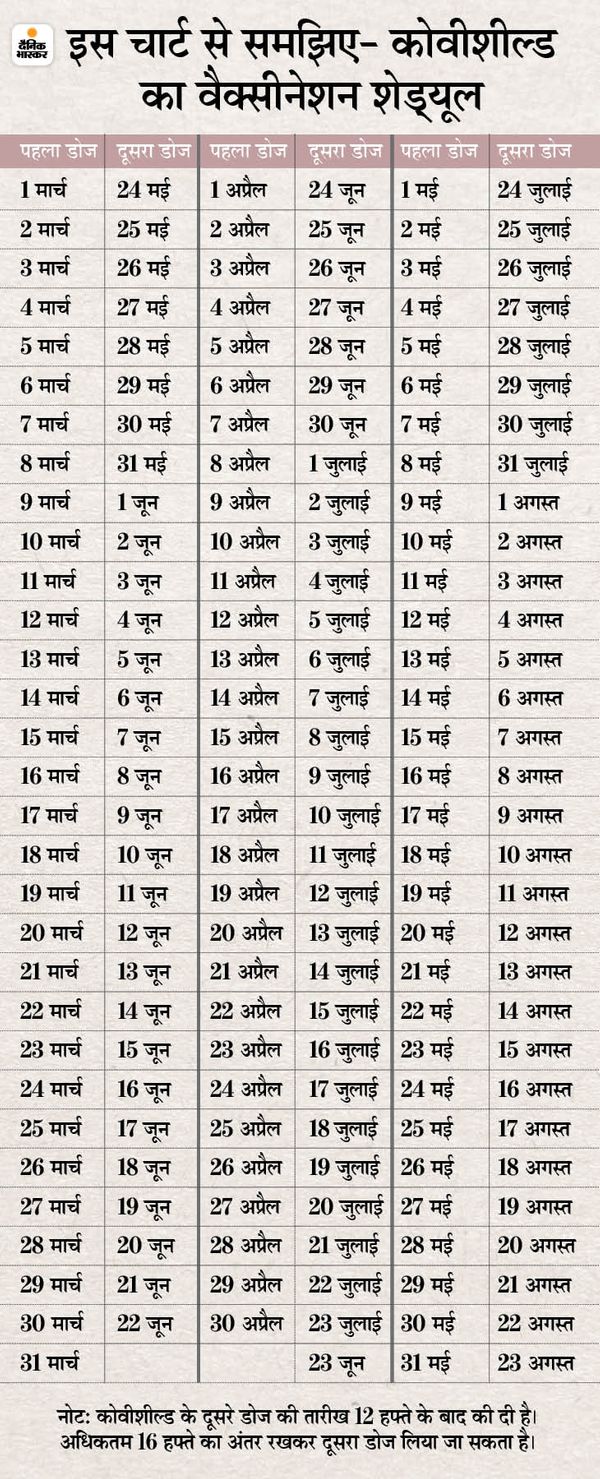 दैनिक
भास्कर
इस चार्ट से समझिए- कोवीशील्ड
का वैक्सीनेशन शेड्यूल
पहला डोज दूसरा डोज पहला डोज दूसरा डोज पहला डोज दूसरा डोज
1 मार्च 24 मई 1 अप्रैल 24 जून 1 मई 24 जुलाई
2 मार्च 25 मई 2 अप्रैल 25 जून 2 मई 25 जुलाई
3 मार्च 26 मई 3 अप्रैल 26 जून 3 मई 26 जुलाई
4 मार्च 27 मई 4 अप्रैल 27 जून 4 मई 27 जुलाई
5 मार्च 28 मई 5 अप्रैल 28 जून 5 मई 28 जुलाई
6 मार्च 29 मई 6 अप्रैल 29 जून 6 मई 29 जुलाई
7 मार्च 30 मई 7 अप्रैल 30 जून 7 मई 30 जुलाई
8 मार्च 31 मई 8 अप्रैल 1 जुलाई 8 मई 31 जुलाई
9 मार्च 1 जून 9 अप्रैल 2 जुलाई 9 मई 1 अगस्त
10 मार्च 2 जून 10 अप्रैल 3 जुलाई 10 मई 2 अगस्त
11 मार्च 3 जून 11 अप्रैल 4 जुलाई 11 मई 3 अगस्त
12 मार्च 4 जून 12 अप्रैल 5 जुलाई 12 मई 4 अगस्त
13 मार्च 5 जून 13 अप्रैल 6 जुलाई 13 मई 5 अगस्त
14 मार्च 6 जून 14 अप्रैल 7 जुलाई 14 मई 6 अगस्त
15 मार्च 7 जून 15 अप्रैल 8 जुलाई 15 मई 7 अगस्त
16 मार्च 8 जून 16 अप्रैल 9 जुलाई 16 मई 8 अगस्त
17 मार्च 9 जून 17 अप्रैल 10 जुलाई 17 मई 9 अगस्त
18 मार्च 10 जून 18 अप्रैल 11 जुलाई 18 मई 10 अगस्त
19 मार्च 11 जून 19 अप्रैल 12 जुलाई 19 मई 11 अगस्त
20 मार्च 12 जून 20 अप्रैल 13 जुलाई 20 मई 12 अगस्त
21 मार्च 13 जून 21 अप्रैल 14 जुलाई 21 मई 13 अगस्त
22 मार्च 14 जून 22 अप्रैल 15 जुलाई 22 मई 14 अगस्त
23 मार्च 15 जून 23 अप्रैल 16 जुलाई 23 मई 15 अगस्त
24 मार्च 16 जून 24 अप्रैल 17 जुलाई 24 मई 16 अगस्त
25 मार्च 17 जून 25 अप्रैल 18 जुलाई 25 मई 17 अगस्त
26 मार्च 18 जून 26 अप्रैल 19 जुलाई 26 मई 18 अगस्त
27 मार्च 19 जून 27 अप्रैल 20 जुलाई 27 मई 19 अगस्त
28 मार्च 20 जून 28 अप्रैल 21 जुलाई 28 मई 20 अगस्त
29 मार्च 21 जून 29 अप्रैल 22 जुलाई 29 मई 21 अगस्त
30 मार्च 22 जून 30 अप्रैल 23 जुलाई 30 मई 22 अगस्त
31 मार्च 23 जून 31 मई 23 अगस्त
नोट: कोवीशील्ड के दूसरे डोज की तारीख 12 हफ्ते के बाद की दी है।
अधिकतम 16 हफ्ते का अंतर रखकर दूसरा डोज लिया जा सकता है।